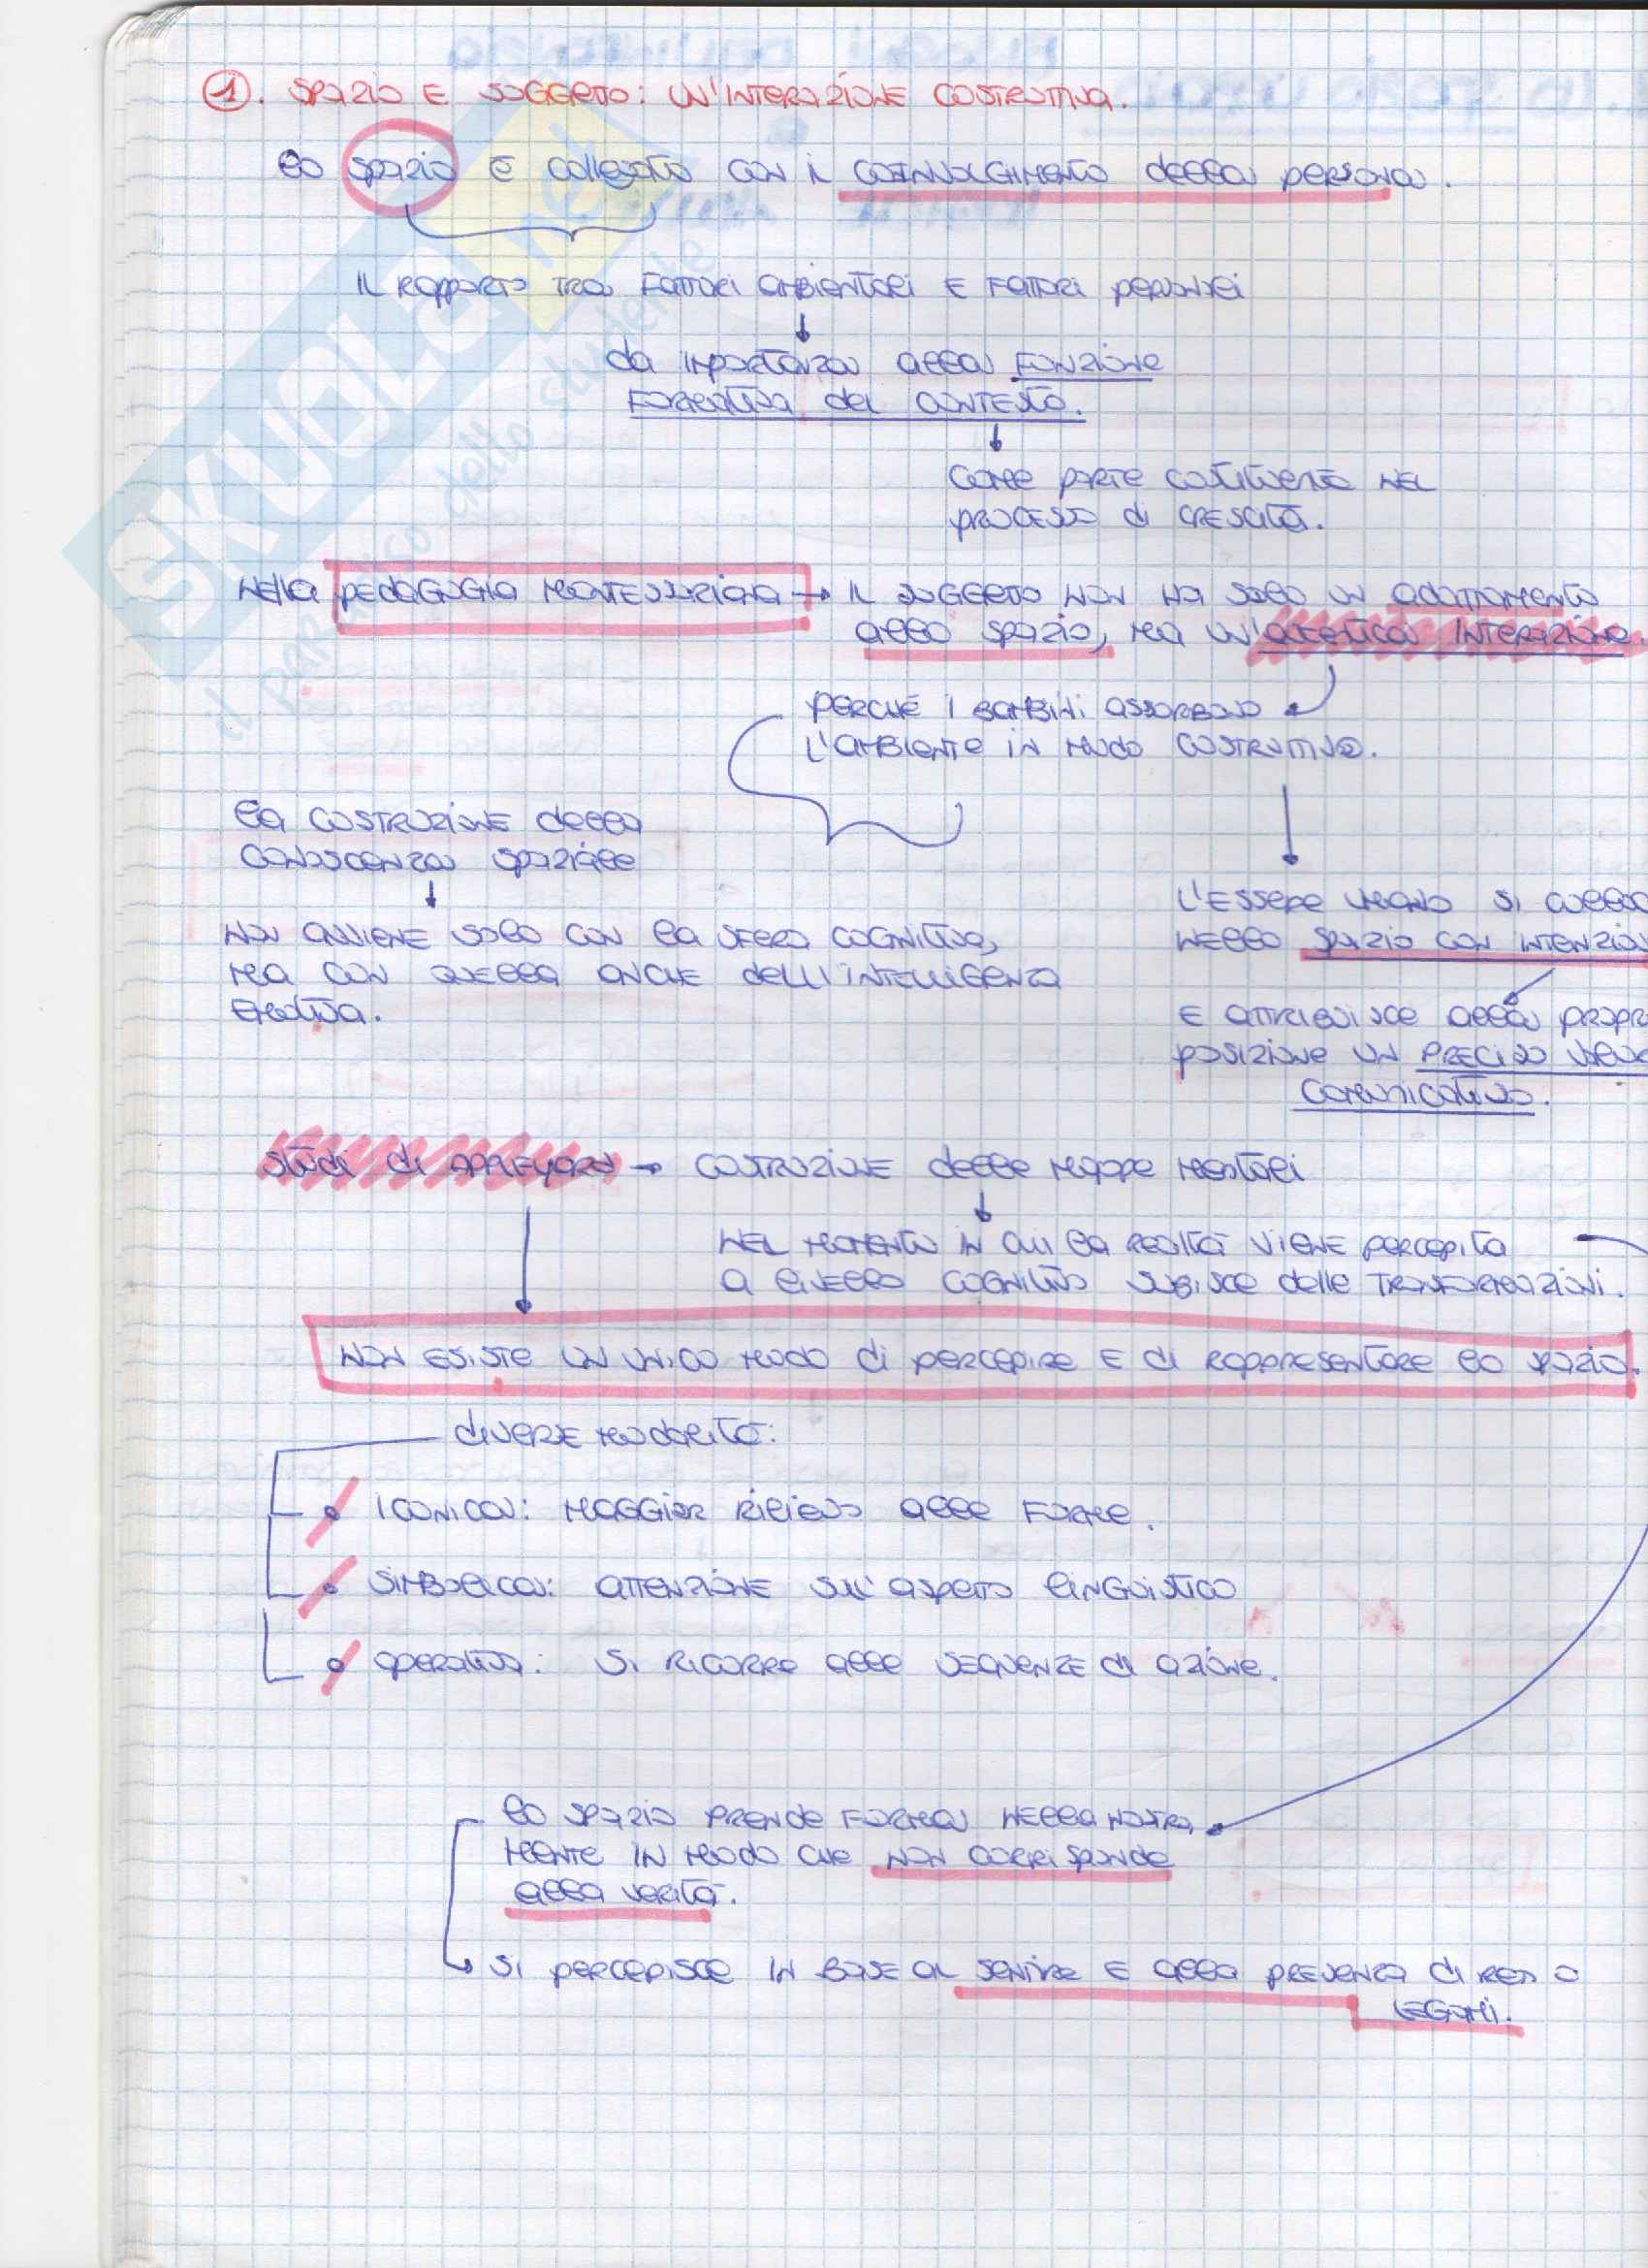 1. SPAZIO E SOGGETTO: UN'INTERAZIONE COSTRUTTIVA.
lo spazio è collegato con il coinvolgimento della persona.
Il rapporto tra fattori ambientali e fattori personali
da importanza alla funzione
formativa del contesto.
come parte costituente nel
processo di crescita.
Nella PEDAGOGIA MONTESSORIANA → il soggetto non ha solo un adattamento
allo spazio, ma un'autentica interazione.
perché i bambini assorbono
l'ambiente in modo costruttivo.
la costruzione della
conoscenza spaziale
non avviene solo con la sfera cognitiva,
ma con quella anche dell'intelligenza
emotiva.
L'essere umano si colloca
nello spazio con intenzion
e attribuisce alla propr
posizione un preciso valo
comunicativo.
Studi di Appleyard → costruzione delle mappe mentali
nel momento in cui la realtà viene percepita
a livello cognitivo subisce delle trasformazioni.
Non esiste un unico modo di percepire e di rappresentare lo spazio.
diverse modalità:
• iconica: maggior rilievo alle forme.
• simbolica: attenzione sull'aspetto linguistico
• operativa: si ricorre alle sequenze di azione.
lo spazio prende forma nella nostra
mente in modo che non corrisponde
alla verità.
si percepisce in base al sentire e alla presenza di reti o
legami.
SKUOLA.net
il paradiso dello studente